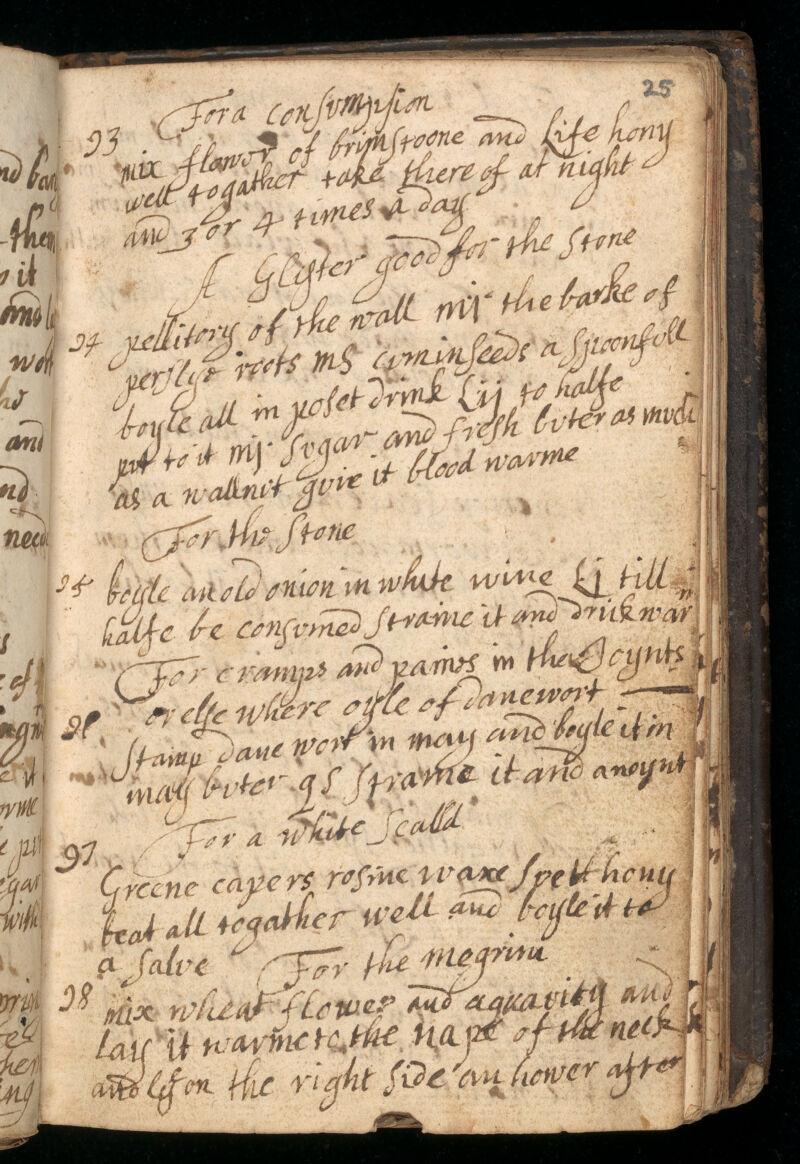 25
For a consumpsion
93 mix flower of brimstoone and Life hony
well togather take there of at night
and 3 or 4 times a day
A Glister good for the stone
94 pellitory of the wall mj the barke of
perslye roots ms cuminseeds a spoonfull
boyle all in poset drink Lij to halfe
put to it mj sugar and fresh buter as much
as a wallnut give it blood warme
For the stone
95 boyle an old onion in white wine Lj till
halfe be consumed straine it and drick war
For cramps and paines in the Joynts
or else where oyle of danewort
96 stamp dane wort in may and boyle it in
may buter qs straine it and anoynt
For a white scalld
97
Greene capers rosine waxe hony
beat all togather well and boyle it to
a salve For the megrim
98 mix wheat flower and aquavity and
Lay it warme to the nape of the neck
and Ly on the right side an hower after
nd
them
o it
and
wort
and
nd
need
of
egar
with